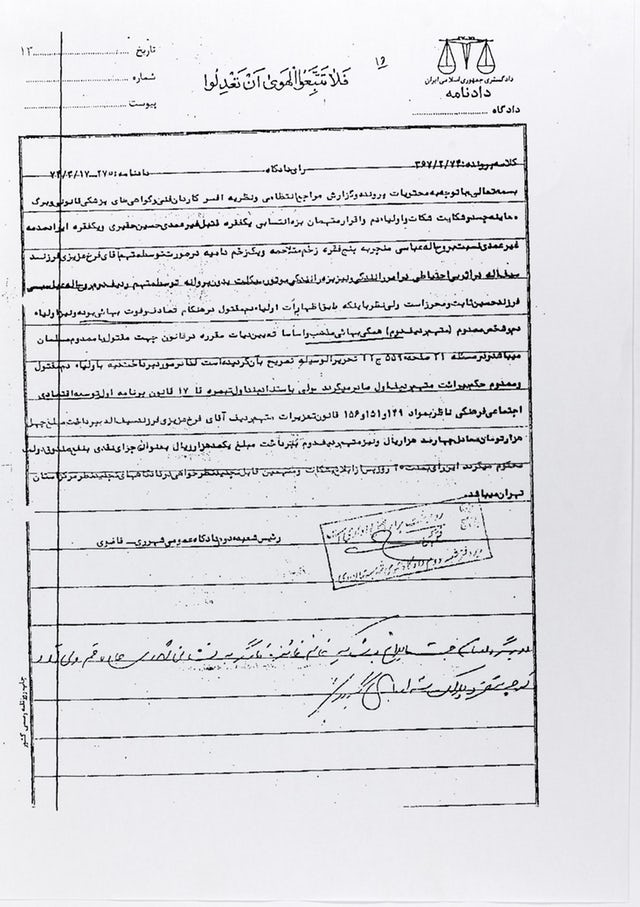 دادگستری جمهوری اسلامی ایران
دادنامه
دادگاه
فَلا تَتَّبِعُوا الْهَویٰ اَنْ تَعْدِلُوا
تاریخ ۱۳
شماره
پیوست
کلاسه پرونده: ۳۶۷/۲/۷۴ رای دادگاه دادنامه: ۲۷۵-۷۴/۳/۱۷
بسمه تعالی با توجه به محتویات پرونده و گزارش مراجع انتظامی و نظریه افسر کاردان فنی و گواهی های پزشکی قانونی و برگ
معاینه جسد و شکایت شکات و اولیاء دم و اقرار متهمان بزه انتسابی یکفقره قتل غیر عمدی حسین حقیری و یکفقره ایراد صدمه
غیر عمدی نسبت بروح اله عباسی منجر به پنج فقره زخم متلاحمه و یک زخم دامیه در صورت توسط متهم آقای فرخ عزیزی فرزند
سیف اله در اثر بی احتیاطی در امر رانندگی و نیز بزه رانندگی موتورسیکلت بدون پروانه توسط متهم ردیف دوم روح اله عباسی
فرزند حسین ثابت و محرز است ولی نظر باینکه طبق اظهارات اولیاء دم مقتول در هنگام تصادف و فوت بهائی بوده و نیز اولیاء
دم و شخص مصدوم (متهم ردیف دوم) همگی بهائی مذهب و اساسا تعیین دیات مقرره در قانون جهت مقتول یا مصدوم مسلمان
میباشد و در مسئله ۳۱ صفحه ۵۵۹ ج ۲ تحریر الوسیله تصریح بآن گردیده است لذا در مورد پرداخت دیه باولیاء دم مقتول
و مصدوم حکم برائت متهم ردیف اول صادر میگردد ولی باستناد بند اول تبصره ۱۷ قانون برنامه اول توسعه اقتصادی
اجتماعی فرهنگی ناظر بمواد ۱۴۹ و ۱۵۱ و ۱۵۶ قانون تعزیرات متهم ردیف آقای فرخ عزیزی فرزند سیف اله بپرداخت مبلغ چهل
هزار تومان معادل چهارصد هزار ریال و نیز متهم ردیف دوم بپرداخت مبلغ یکصد هزار ریال بعنوان جزای نقدی بنفع صندوق دولت
محکوم میگردند این رای بمدت ۲۰ روز پس از ابلاغ بشکات و متهمین قابل تجدید نظر خواهی در دادگاههای تجدید نظر مرکز استان
تهران میباشد.
رئیس شعبه دوم دادگاه عمومی شهرری - قانوی
چاپ روزنامه رسمی کشور